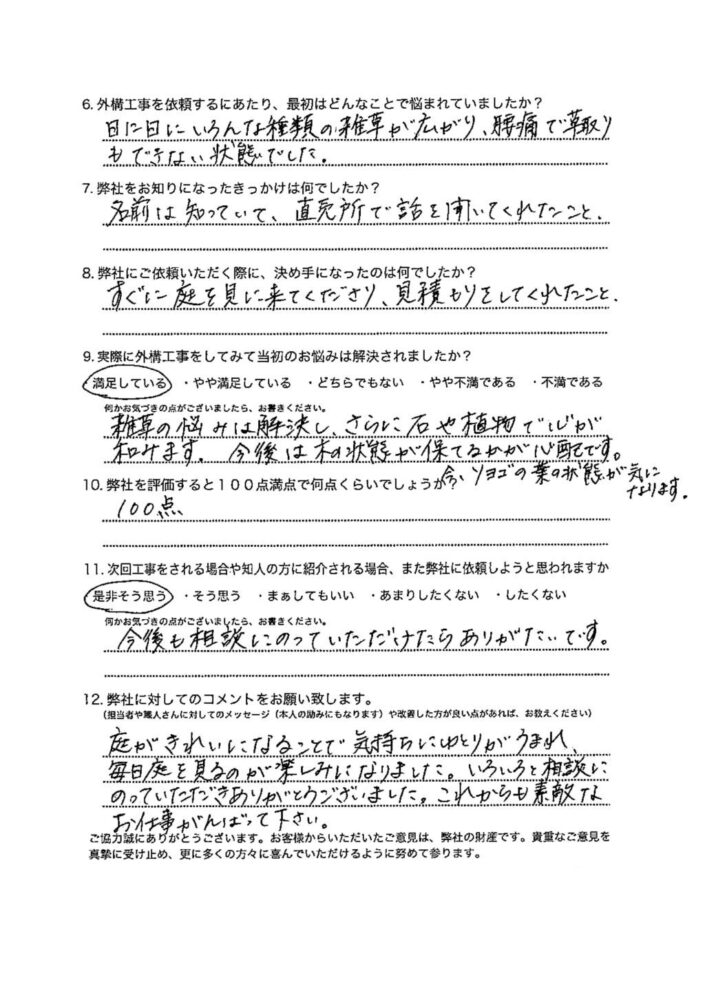 6. 外構工事を依頼するにあたり、最初はどんなことで悩まれていましたか？
日に日にいろんな種類の雑草が広がり、腰痛で草取り
もできない状態でした。
7. 弊社をお知りになったきっかけは何でしたか？
名前は知っていて、直売所で話を聞いてくれたこと、
8. 弊社にご依頼いただく際に、決め手になったのは何でしたか？
すぐに庭を見に来てくださり、見積もりをしてくれたこと、
9. 実際に外構工事をしてみて当初のお悩みは解決されましたか？
満足している ・やや満足している ・どちらでもない ・やや不満である ・不満である
何かお気づきの点がございましたら、お書きください。
雑草の悩みは解決し、さらに石や植物で心が
和みます。今後は木の状態が保てるかが心配です。
今、ソヨゴの葉の状態が気に
なります。
10. 弊社を評価すると１００点満点で何点くらいでしょうか？
100点
11. 次回工事をされる場合や知人の方に紹介される場合、また弊社に依頼しようと思われますか
是非そう思う ・そう思う ・まぁしてもいい ・あまりしたくない ・したくない
何かお気づきの点がございましたら、お書きください。
今後も相談にのっていただけたらありがたいです。
12. 弊社に対してのコメントをお願い致します。
（担当者や職人さんに対してのメッセージ（本人の励みにもなります）や改善した方が良い点があれば、お教えください）
庭がきれいになることで気持ちにゆとりがうまれ、
毎日庭を見るのが楽しみになりました。いろいろと相談に
のっていただきありがとうございました。これからも素敵な
お仕事がんばって下さい。
ご協力誠にありがとうございます。お客様からいただいたご意見は、弊社の財産です。貴重なご意見を
真摯に受け止め、更に多くの方々に喜んでいただけるように努めて参ります。